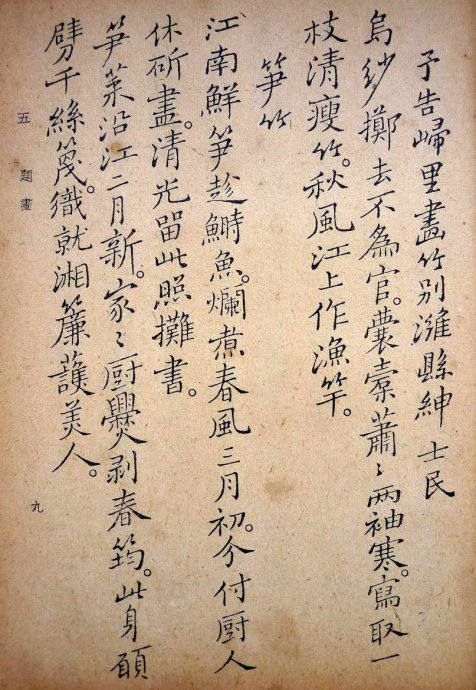 予告歸里畫竹別濰縣紳士民
烏紗擲去不為官。囊橐蕭〻兩袖寒。寫取一
枝清瘦竹。秋風江上作漁竿。
笋竹
江南鮮笋趂鰣魚。爛煮春風三月初。分付厨人
休斫盡。清光留此照攤書。
笋菜沿江二月新。家〻厨爨剥春筠。此身願
劈千絲篾。織就湘簾護美人。
五 題畫
九